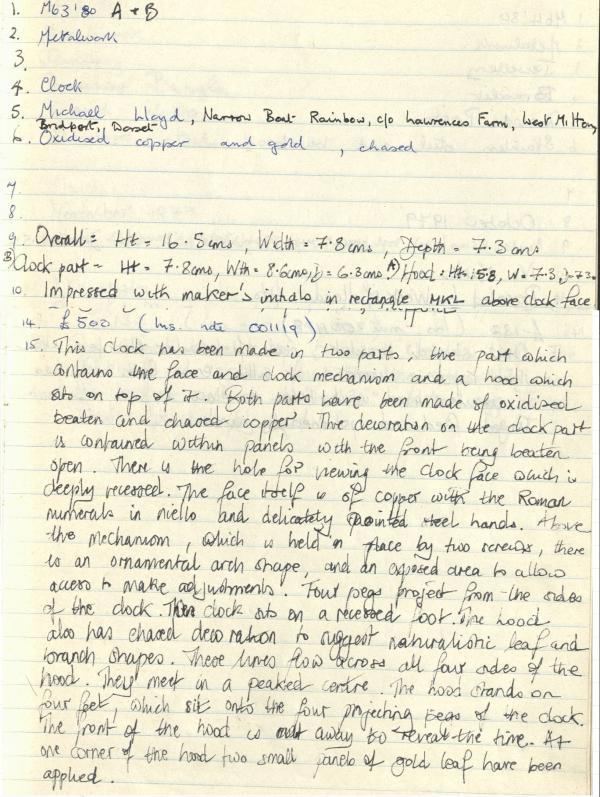 1. M63'80 A + B
2. Metalwork
3.
4. Clock
5. Michael Lloyd, Narrow Boat Rainbow, c/o Lawrences Farm, West Milton,
Bridport, Dorset
6. Oxidised copper and gold, chased
7.
8.
9. Overall: Ht = 16.5cms, Width = 7.8cms, Depth = 7.3cms
B) Clock part - Ht = 7.8cms, Wth = 8.6cms, D = 6.3cms A) Hood: Ht: 58, W = 7.3, D-73.
10. Impressed with maker's initials in rectangle MKL above clock face
14. £500 (Ins. note 001119)
15. This clock has been made in two parts, the part which
contains the face and clock mechanism and a hood which
sits on top of it. Both parts have been made of oxidized
beaten and chased copper. The decoration on the clock part
is contained within panels with the front being beaten
open. There is the hole for viewing the clock face which is
deeply recessed. The face itself is of copper with the Roman
numerals in niello and delicately pointed steel hands. Above
the mechanism, which is held in place by two screws, there
is an ornamental arch shape, and an exposed area to allow
access to make adjustments. Four pegs project from the sides
of the clock. The clock sits on a recessed foot. The hood
also has chased decoration to suggest naturalistic leaf and
branch shapes. These lines flow across all four sides of the
hood. They meet in a peaked centre. The hood stands on
four feet, which sit onto the four projecting pegs of the clock.
The front of the hood is cut away to reveal the time. At
one corner of the hood two small panels of gold leaf have been
applied.